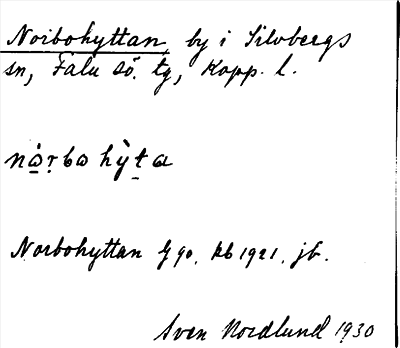 Norbohyttan, by i Silvbergs
sn, Falu sö. tg, Kopp. l.
nọ̀rbo hỳta
Norbohyttan Gg 90. kb 1921. jb.
Sven Nordlund 1930